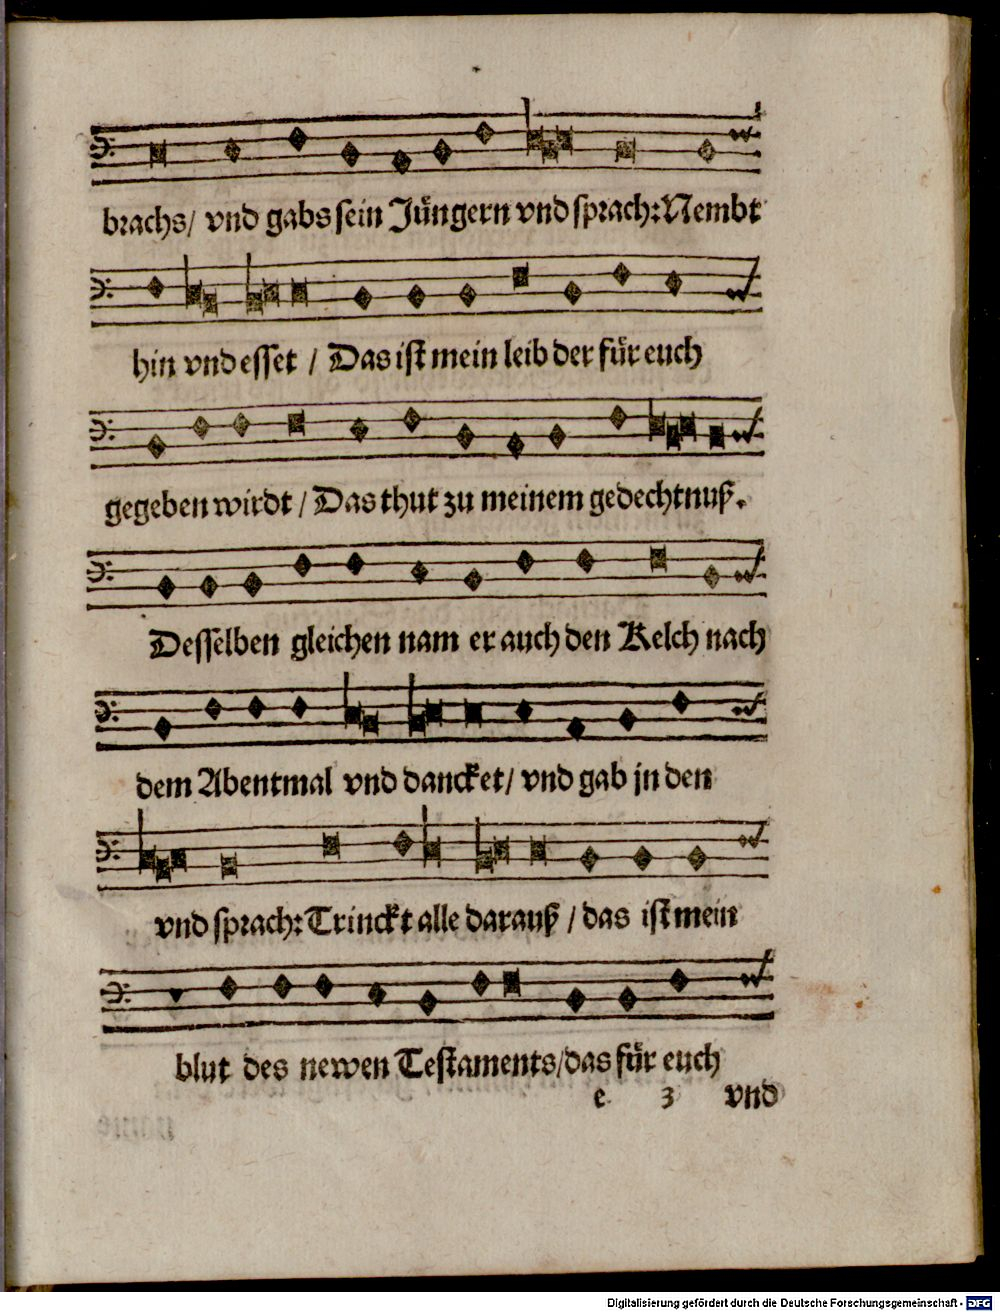 brachs/ vnd gabs sein Jüngern vnd sprach: Nembt
hin vnd esset / Das ist mein leib der für euch
gegeben wirdt / Das thut zu meinem gedechtnuß.
Desselben gleichen nam er auch den Kelch nach
dem Abentmal vnd dancket/ vnd gab jn den
vnd sprach: Trinckt alle darauß / das ist mein
blut des newen Testaments/das für euch
e 3 vnd
Digitalisierung gefördert durch die Deutsche Forschungsgemeinschaft - DFG